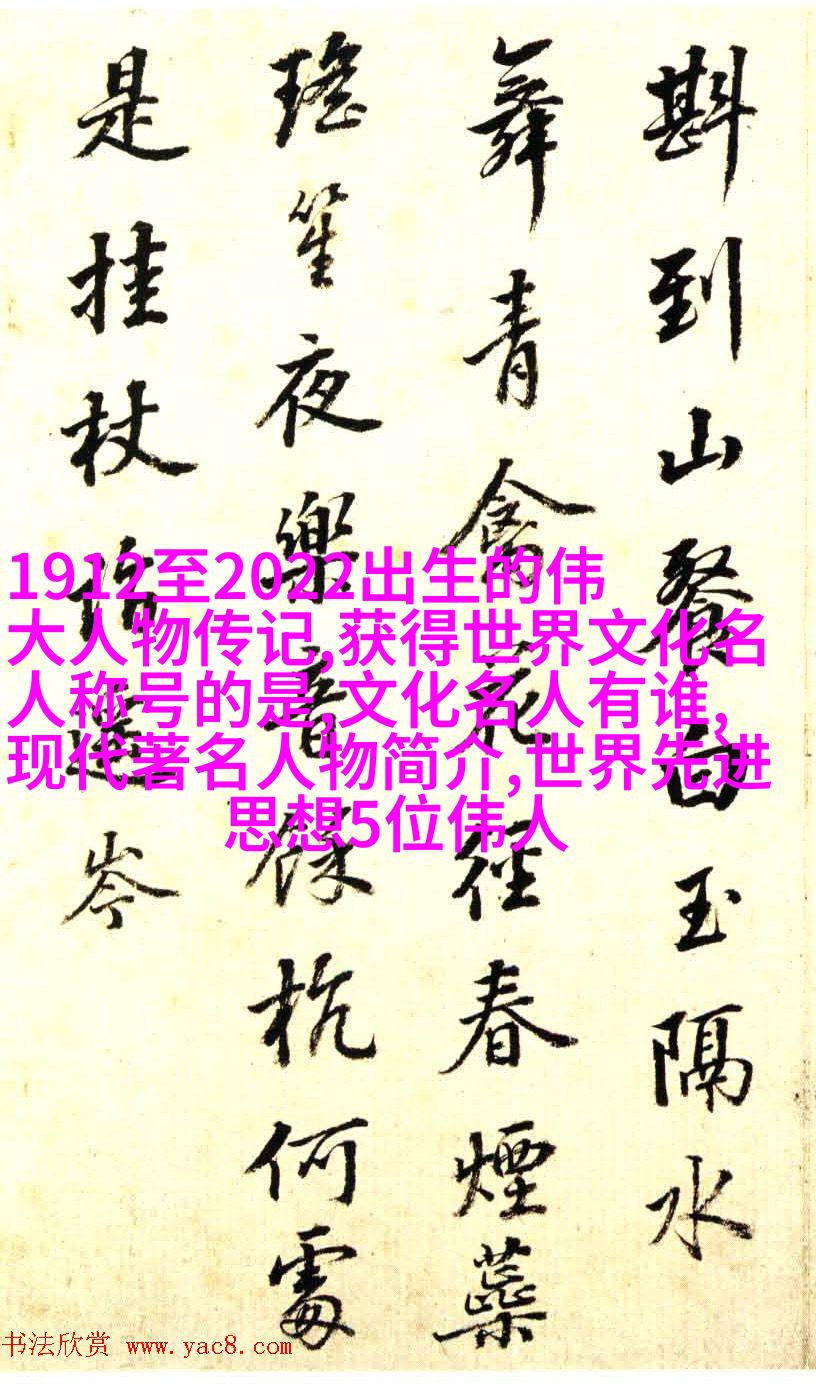 斟到山餐白玉隔水
舞青禽花径春煙蘂
瑤笙夜樂音餘杭何處
是挂杖指遥岑
1912至2022出生的伟
大人物传记,获得世界文化名
人称号的是,文化名人有谁,
现代著名人物简介,世界先进
思想5位伟人
书法欣赏 www.yac8.com